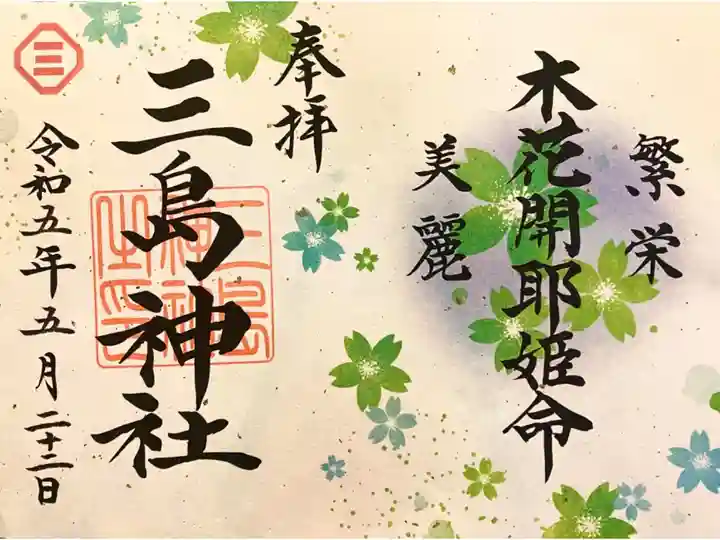 繁栄
木花開耶姫命
美麗
奉拝
三島神社
三島神社之印
三
令和五年五月二十二日